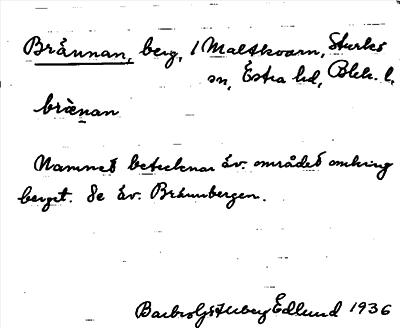 Brännan, berg, 1 Maltkvarn, Sturkö
sn, Östra hd, Blek. l.
brænan
Namnet betecknar äv. området omkring
berget. Se äv. Brännbergen.
Edlund 1936